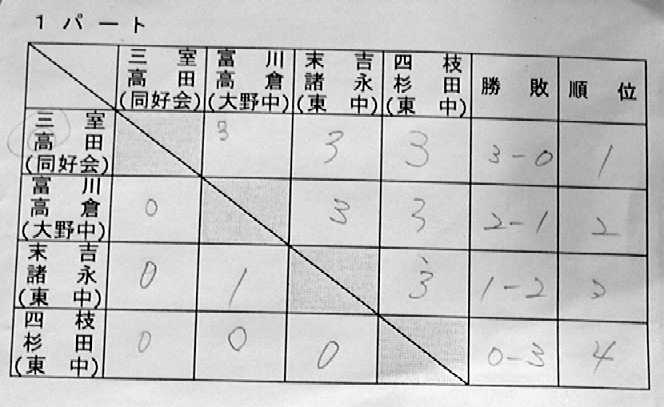 1 パート
三室 富川 末吉 四枝
高田 高倉 諸永 杉田 勝敗 順位
(同好会) (大野中) (東中) (東中)
三室
高田 3 3 3 3-0 1
(同好会)
富川
高倉 0 3 3 2-1 2
(大野中)
末吉
諸永 0 1 3 1-2
(東中)
四枝
杉田 0 0 0 0-3 4
(東中)